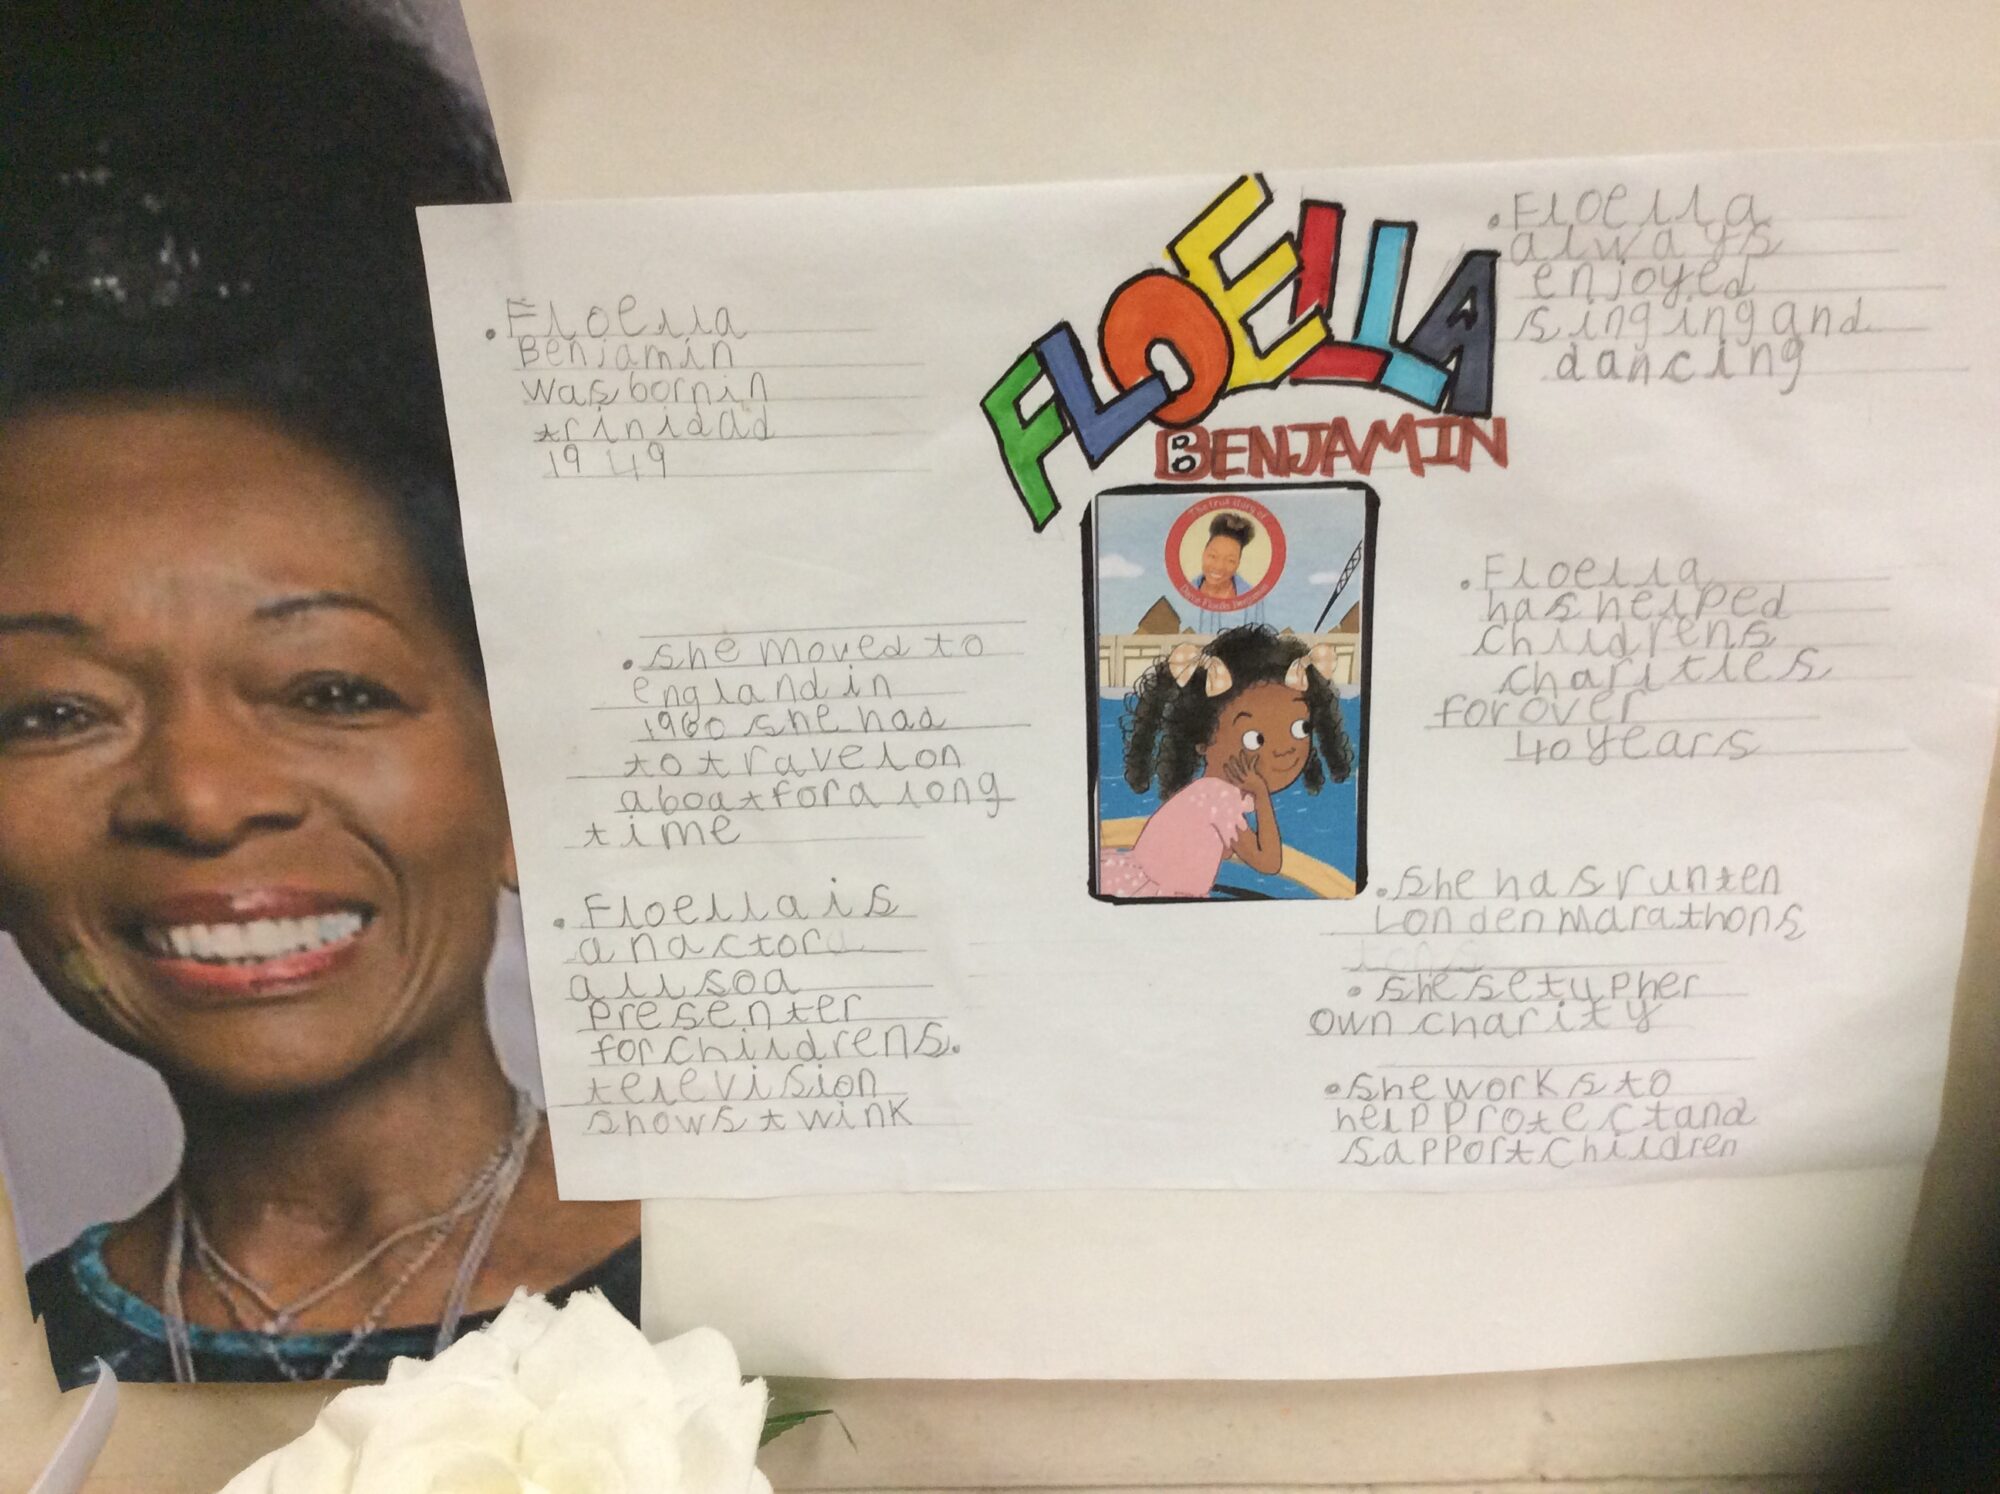 FLOELLA
BENJAMIN
The true story of
Dame Floella Benjamin
• Floella
Benjamin
was born in
trinidad
1949
• she moved to
england in
1960 she had
to travel on
a boat for a long
time
• Floella is
an actor
allso a
presenter
for childrens.
television
shows twink
• Floella
always
enjoyed
singing and
dancing
• Floella
has helped
childrens
charities
for over
40 years
• she has run ten
Londen marathons
• she set up her
own charity
• she works to
help protect and
sapport children